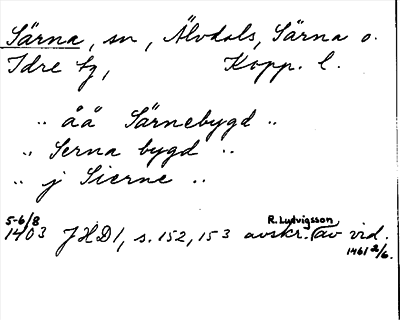 Särna, sn, Älvdals, Särna o.
Idre tg, Kopp. l.
" åå Särnebygd "
" Serna bygd "
" j Sierne "
5-6/8
1403 JHD 1, s. 152, 153 avskr. (av R. Ludvigsson) vid.
1461 2/6.